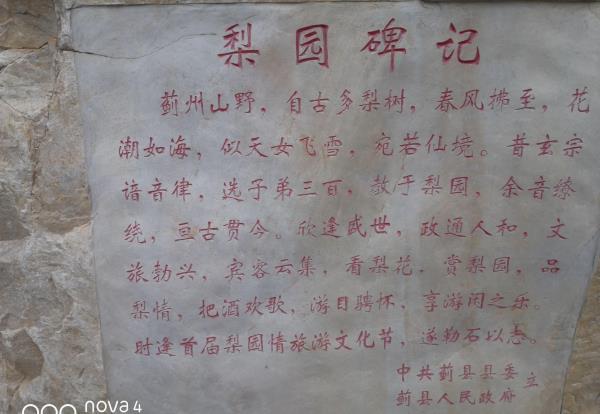 梨园碑记
蓟州山野，自古多梨树，春风拂至，花
潮如海，似天女飞雪，宛若仙境。昔玄宗
谙音律，选子弟三百，教于梨园，余音缭
绕，亘古贯今。欣逢盛世，政通人和，文
旅勃兴，宾客云集，看梨花，赏梨园，品
梨情，把酒欢歌，游目骋怀，享游闲之乐。
时逢首届梨园情旅游文化节，遂勒石以志。
中共蓟县县委
蓟县人民政府 立
nova 4